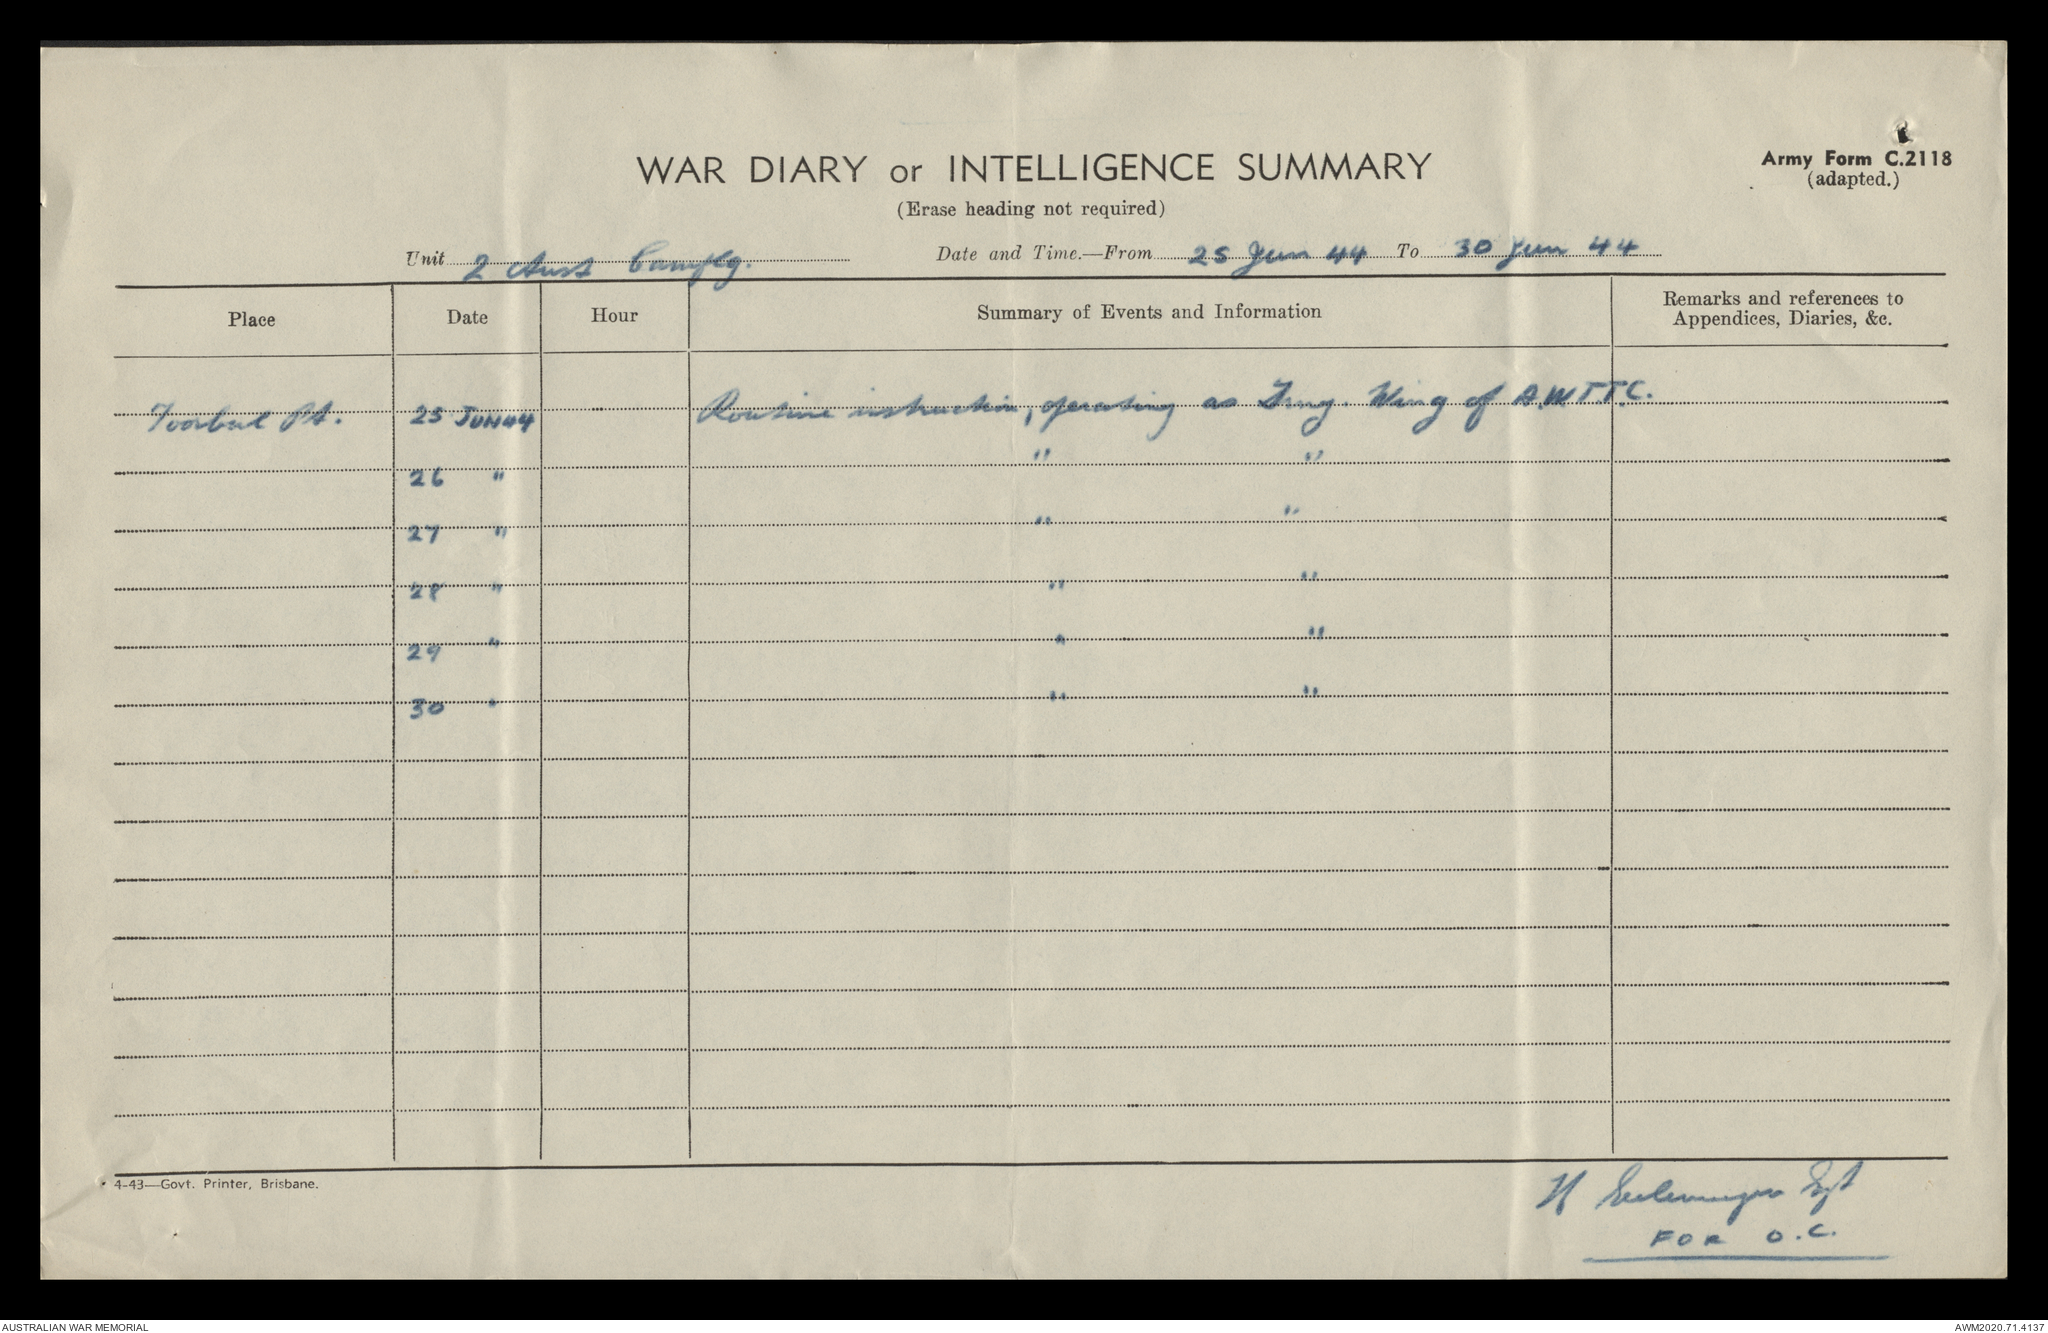 WAR DIARY or INTELLIGENCE SUMMARY
Army Form C.2118
(adapted.)
(Erase heading not required)
Unit 2 Aust
Date and Time.—From 25 Jun 44 To 30 Jun 44
Place Date Hour Summary of Events and Information Remarks and references to
Appendices, Diaries, &c.
Toorbul Pt. 25 JUN 44 Routine instruction, operating as Trng. Wing of A.W.T.T.C.
26 " " "
27 " " "
28 " " "
29 " " "
30 " " "
4-43—Govt. Printer, Brisbane.
H Sgt
FOR O.C.
AUSTRALIAN WAR MEMORIAL
AWM2020.71.4137